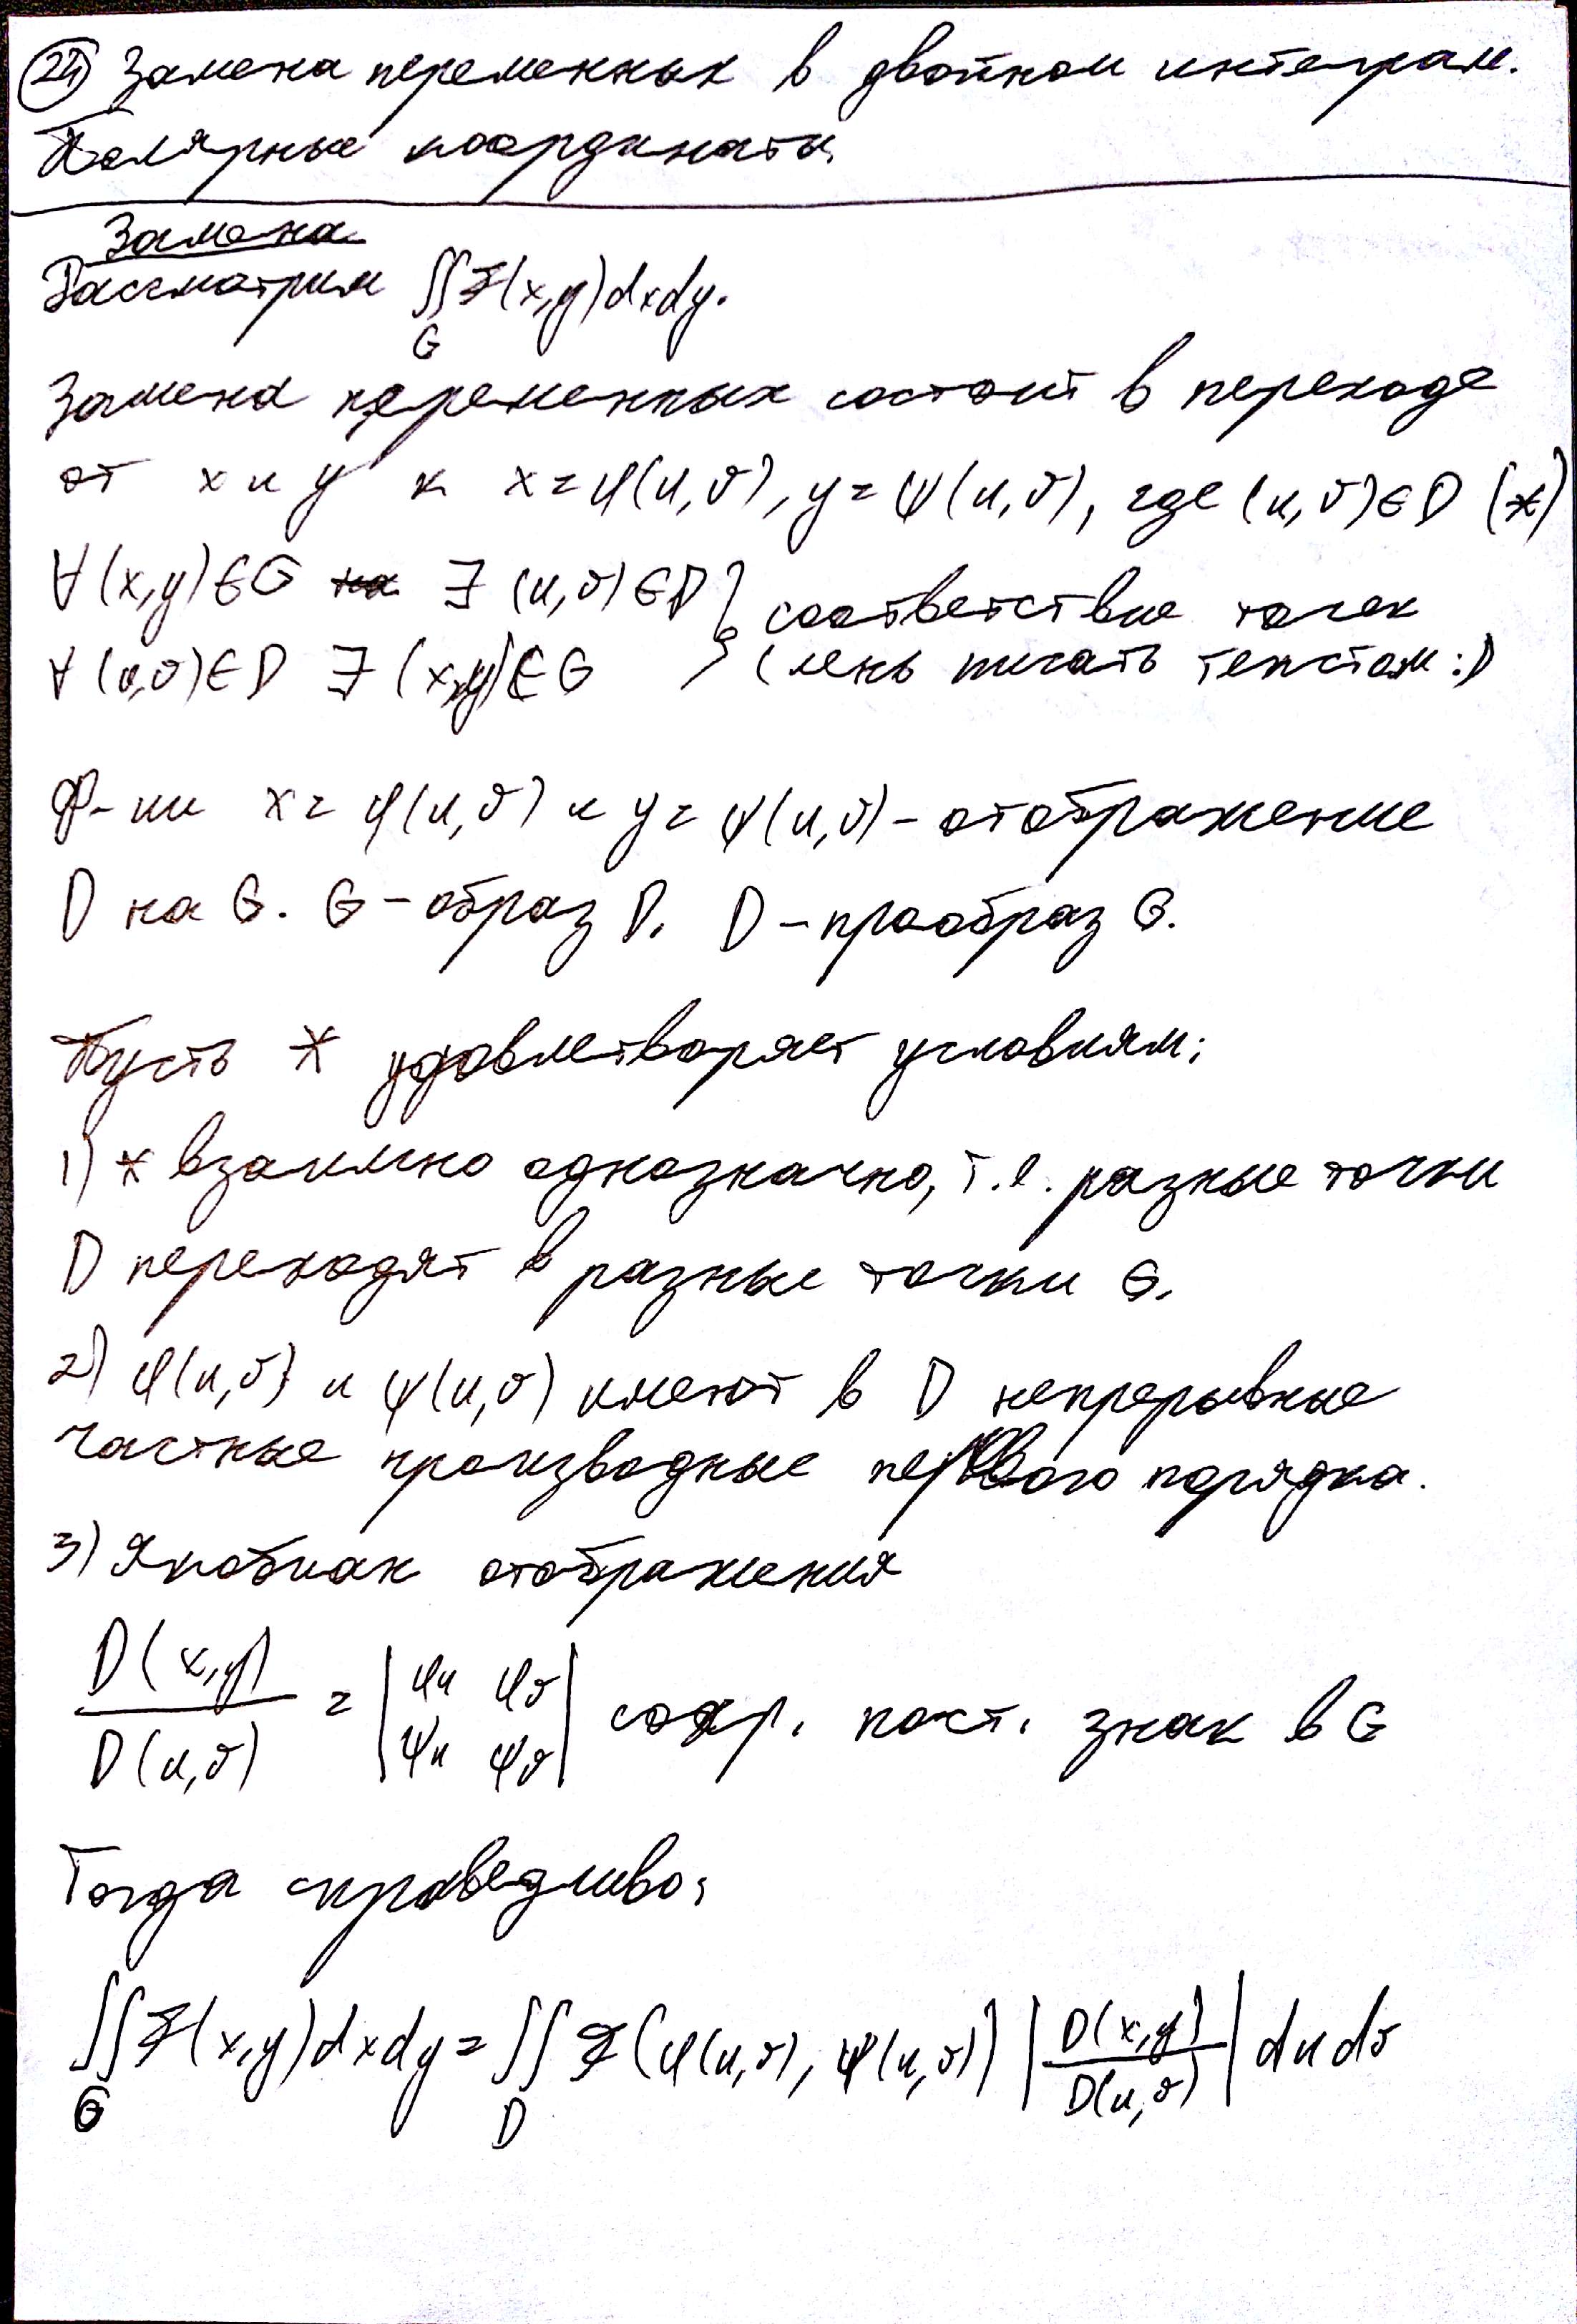 24) Замена переменных в двойном интеграл.
Полярные координаты
Замена
Рассматрим ∬F(x,y)dxdy.
G
Замена переменных состоит в переходе
от x и y к x=φ(u,v), y=ψ(u,v), где (u,v)∈D (*)
∀(x,y)∈G ∃ (u,v)∈D } соответствие точек
∀(u,v)∈D ∃ (x,y)∈G } (лень писать текстом :D
Ф-ии x=φ(u,v) и y=ψ(u,v) - отображение
D на G. G - образ D. D - прообраз G.
Пусть * удовлетворяет условиям:
1) * взаимно однозначно, т.е. разные точки
D переходят в разные точки G.
2) φ(u,v) и ψ(u,v) имеют в D непрерывные
частные производные первого порядка.
3) Якобиан отображения
D(x,y)/D(u,v) = |φu φv; ψu ψv| сохр. пост. знак в G
Тогда справедливо:
∬F(x,y)dxdy = ∬F(φ(u,v), ψ(u,v)) |D(x,y)/D(u,v)| dudv
G D